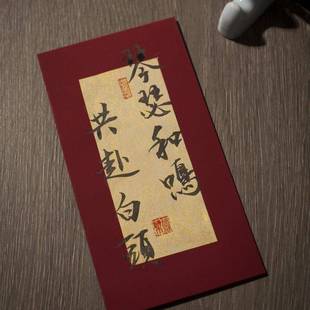 琴瑟和鳴
共赴白頭